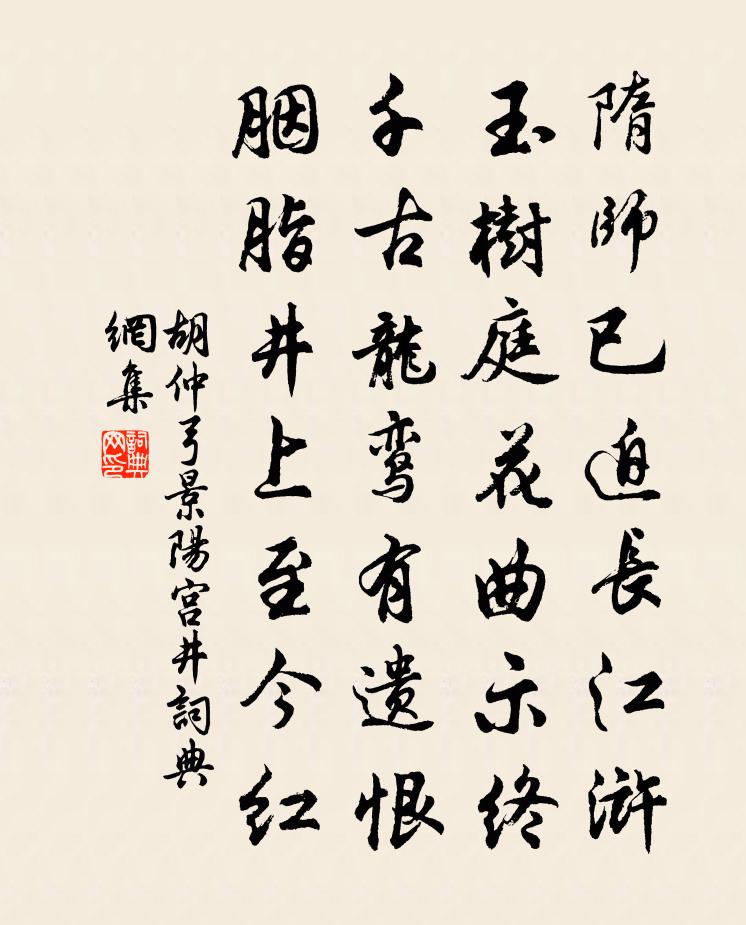 隋師已迫長江滸
玉樹庭花曲示終
千古龍鸾有遺恨
胭脂井上至今紅
胡仲弓景陽宮井詞典
網集
詞典
网印